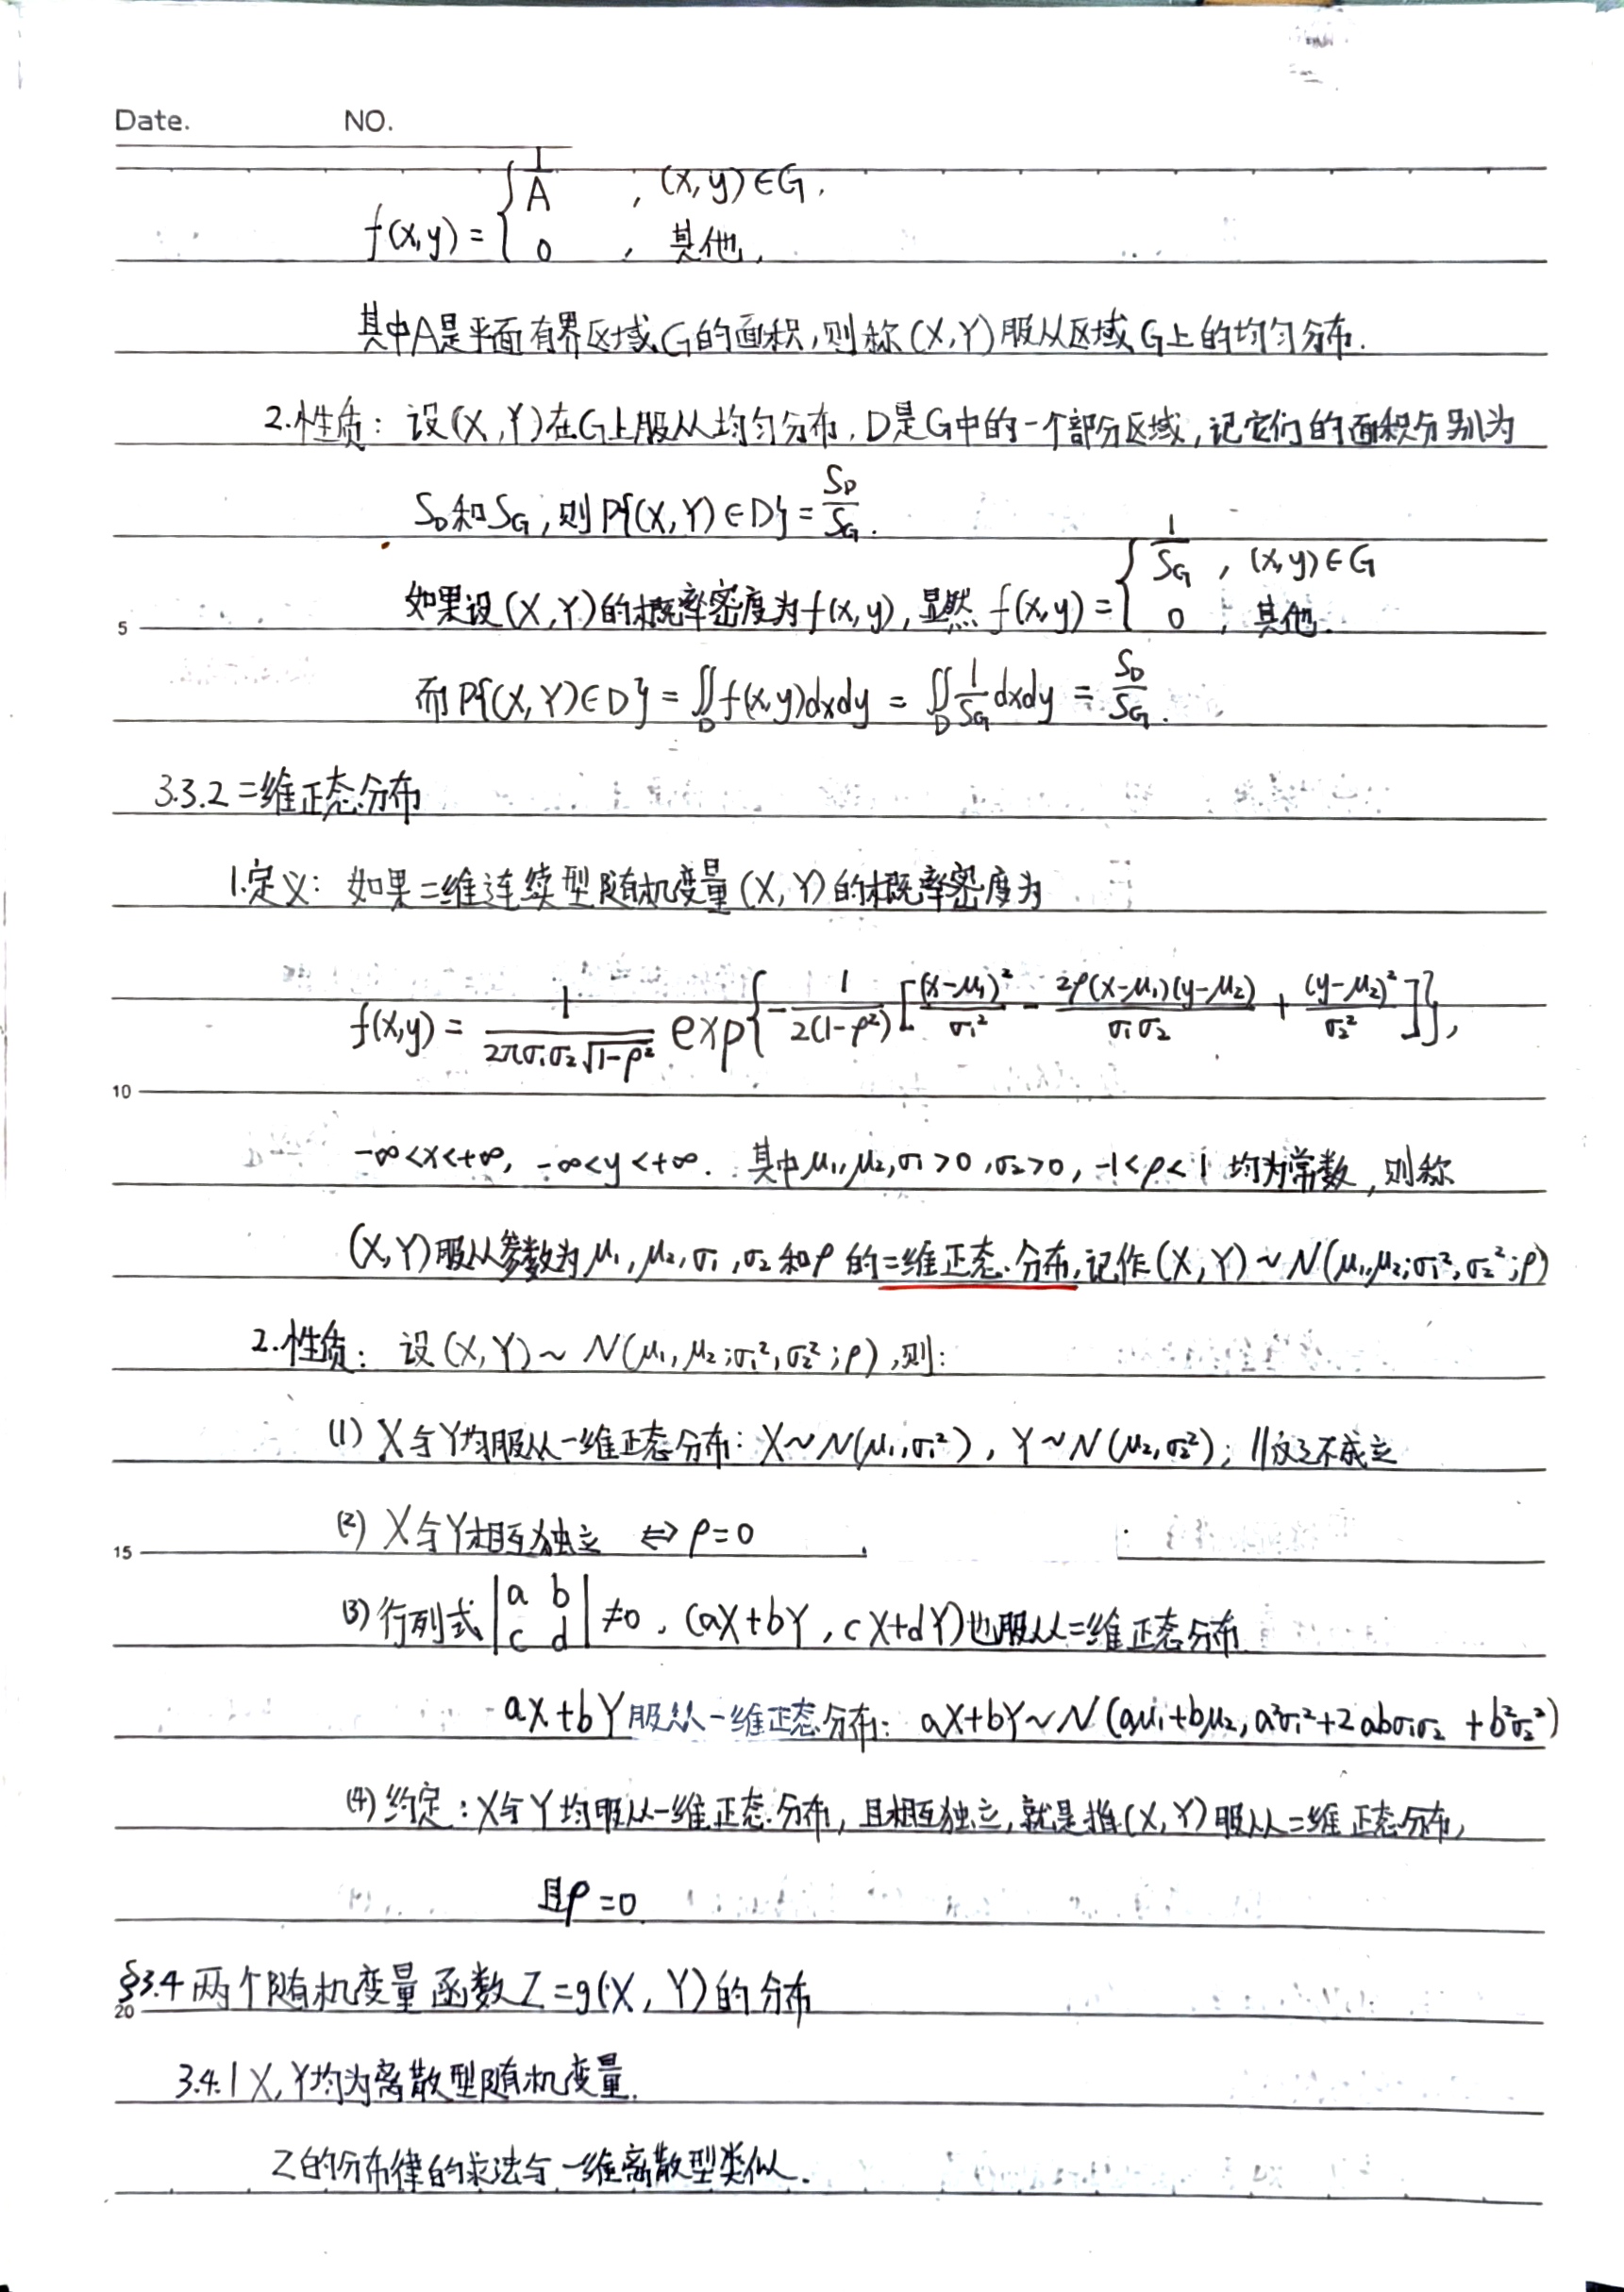 Date. NO.
f(x,y) = { 1/A , (x,y)∈G,
0 , 其他,
其中A是平面有界区域G的面积,则称(X,Y)服从区域G上的均匀分布.
2.性质: 设(X,Y)在G上服从均匀分布,D是G中的一个部分区域,记它们的面积分别为
S_D和S_G,则P{(X,Y)∈D}=S_D/S_G.
如果设(X,Y)的概率密度为f(x,y),显然 f(x,y)={ 1/S_G , (x,y)∈G
5 0 , 其他.
而P{(X,Y)∈D}=∬_D f(x,y)dxdy = ∬_D 1/S_G dxdy = S_D/S_G.
3.3.2 二维正态分布
1.定义: 如果二维连续型随机变量(X,Y)的概率密度为
f(x,y) = 1/(2πσ₁σ₂√(1-ρ²)) exp{-1/(2(1-ρ²)) [(x-μ₁)²/σ₁² - 2ρ(x-μ₁)(y-μ₂)/(σ₁σ₂) + (y-μ₂)²/σ₂²]},
10
-∞<x<+∞, -∞<y<+∞. 其中μ₁,μ₂,σ₁>0,σ₂>0,-1<ρ<1 均为常数,则称
(X,Y)服从参数为μ₁,μ₂,σ₁,σ₂和ρ的二维正态分布,记作(X,Y)~N(μ₁,μ₂;σ₁²,σ₂²;ρ)
2.性质: 设(X,Y)~N(μ₁,μ₂;σ₁²,σ₂²;ρ),则:
(1) X与Y均服从一维正态分布: X~N(μ₁,σ₁²), Y~N(μ₂,σ₂²); //反之不成立
(2) X与Y相互独立 ⇔ ρ=0
15
(3) 行列式|a b; c d|≠0, (aX+bY, cX+dY)也服从二维正态分布.
aX+bY服从一维正态分布: aX+bY~N(aμ₁+bμ₂, a²σ₁²+2abσ₁σ₂ +b²σ₂²)
(4) 约定: X与Y均服从一维正态分布,且相互独立,就是指(X,Y)服从二维正态分布,
且ρ=0
§3.4 两个随机变量函数Z=g(X,Y)的分布
20
3.4.1 X,Y均为离散型随机变量.
Z的分布律的求法与一维离散型类似.